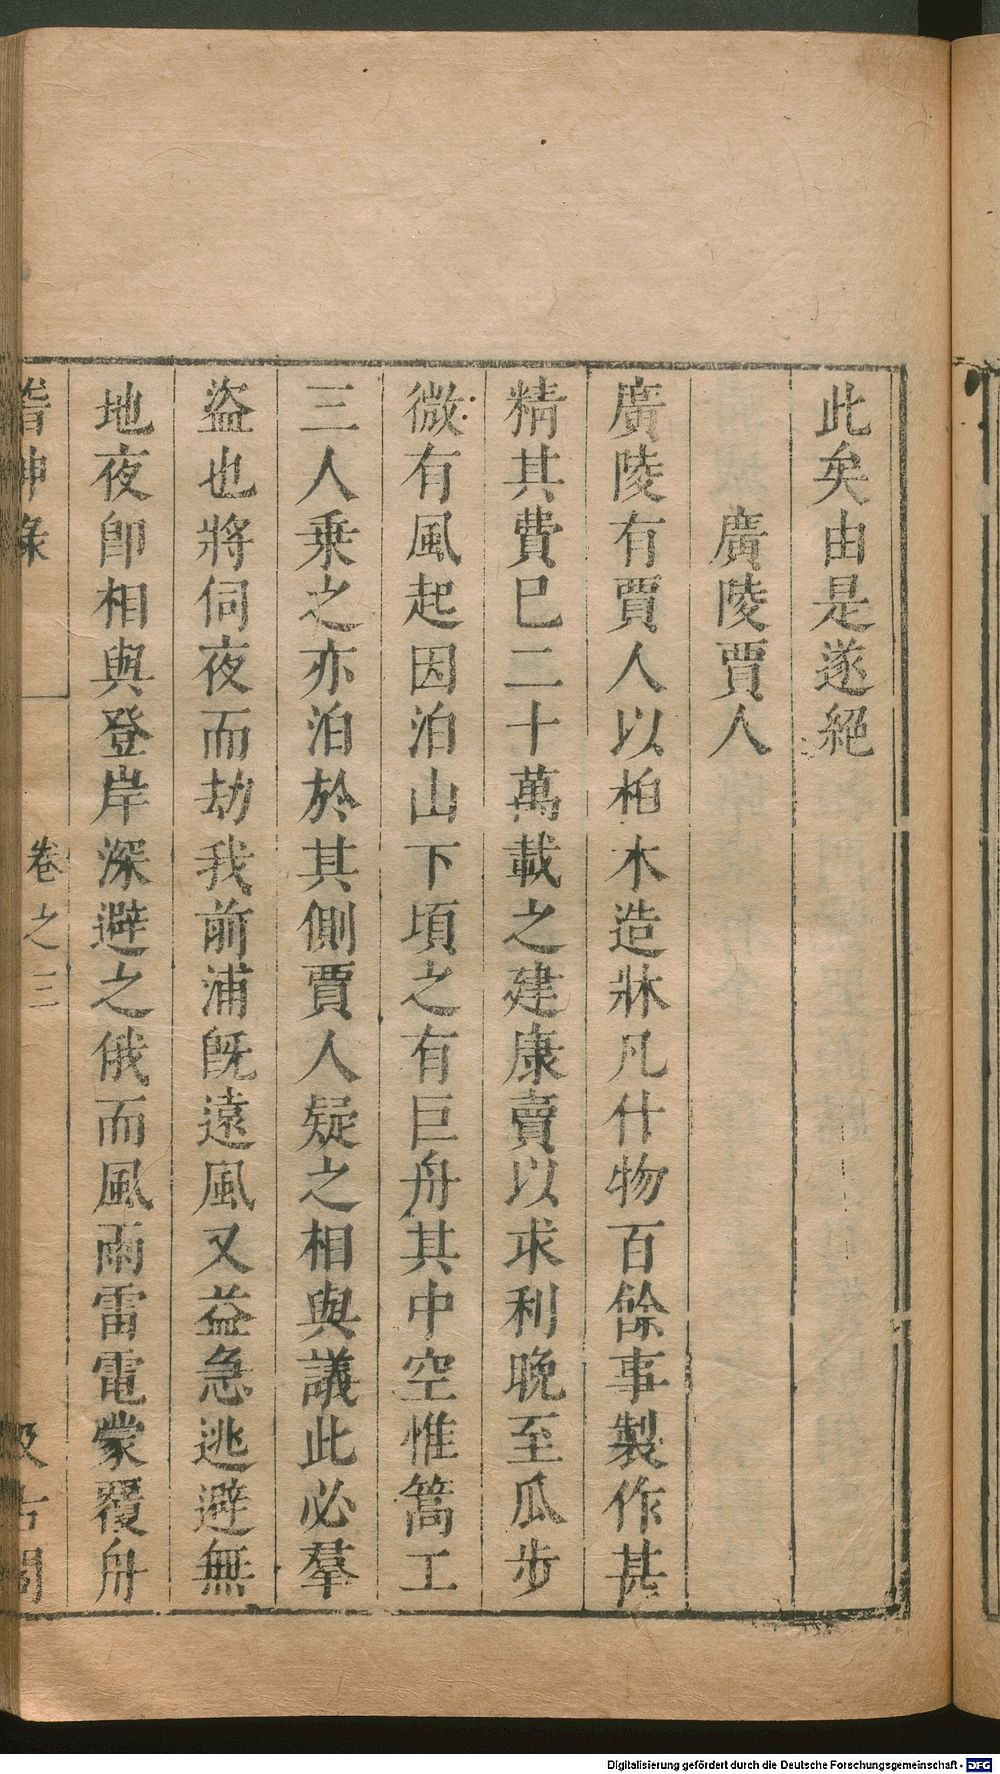 此矣由是遂絕
廣陵賈人
廣陵有賈人以柏木造牀凡什物百餘事製作甚
精其費巳二十萬載之建康賣以求利晚至瓜步
微有風起因泊山下頃之有巨舟其中空惟篙工
三人乗之亦泊於其側賈人疑之相與議此必羣
盜也將伺夜而劫我前浦旣遠風又益急逃避無
地夜卽相與登岸深避之俄而風雨雷電蒙覆舟
稽神錄
卷之三
汲古閣
Digitalisierung gefördert durch die Deutsche Forschungsgemeinschaft - DFG